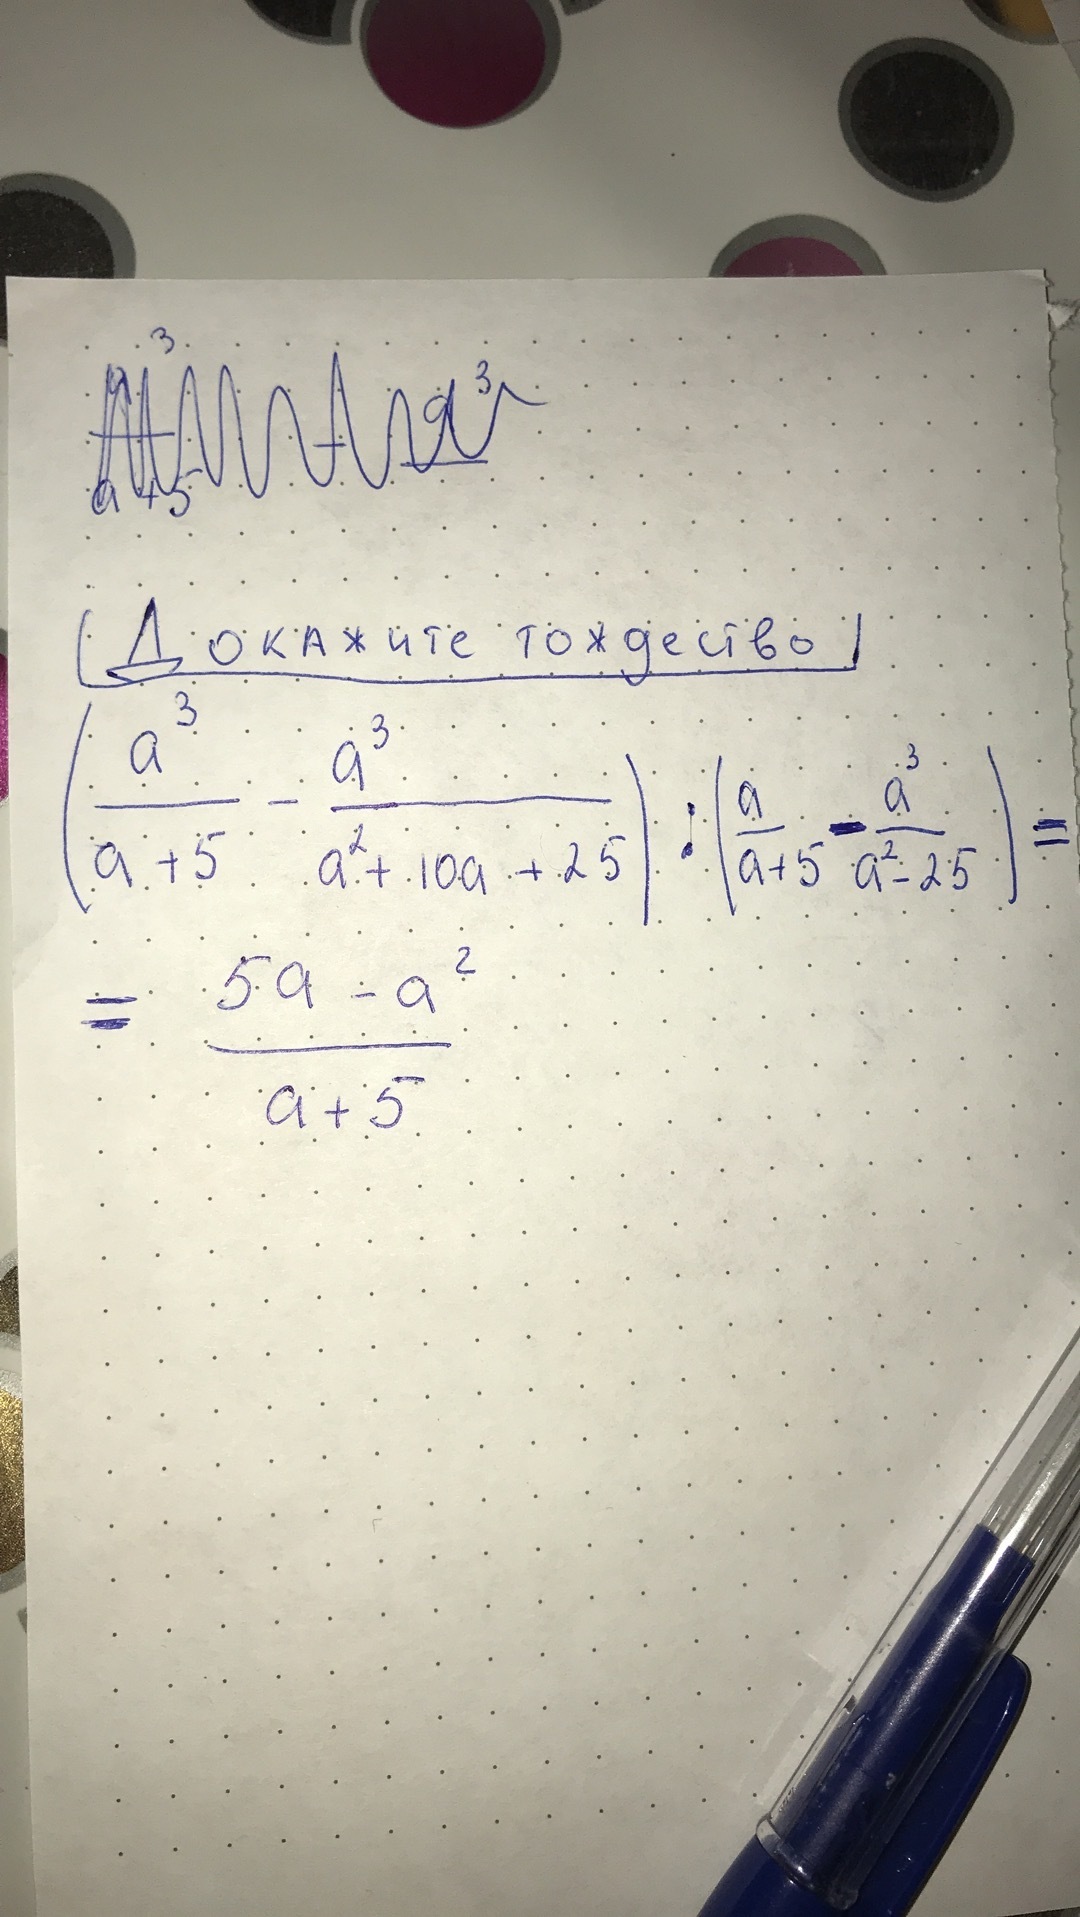 a³ a³
a+5
Докажите тождество
(a³/(a+5) - a³/(a²+10a+25)) : (a/(a+5) - a³/(a²-25)) =
= (5a - a²)/(a+5)